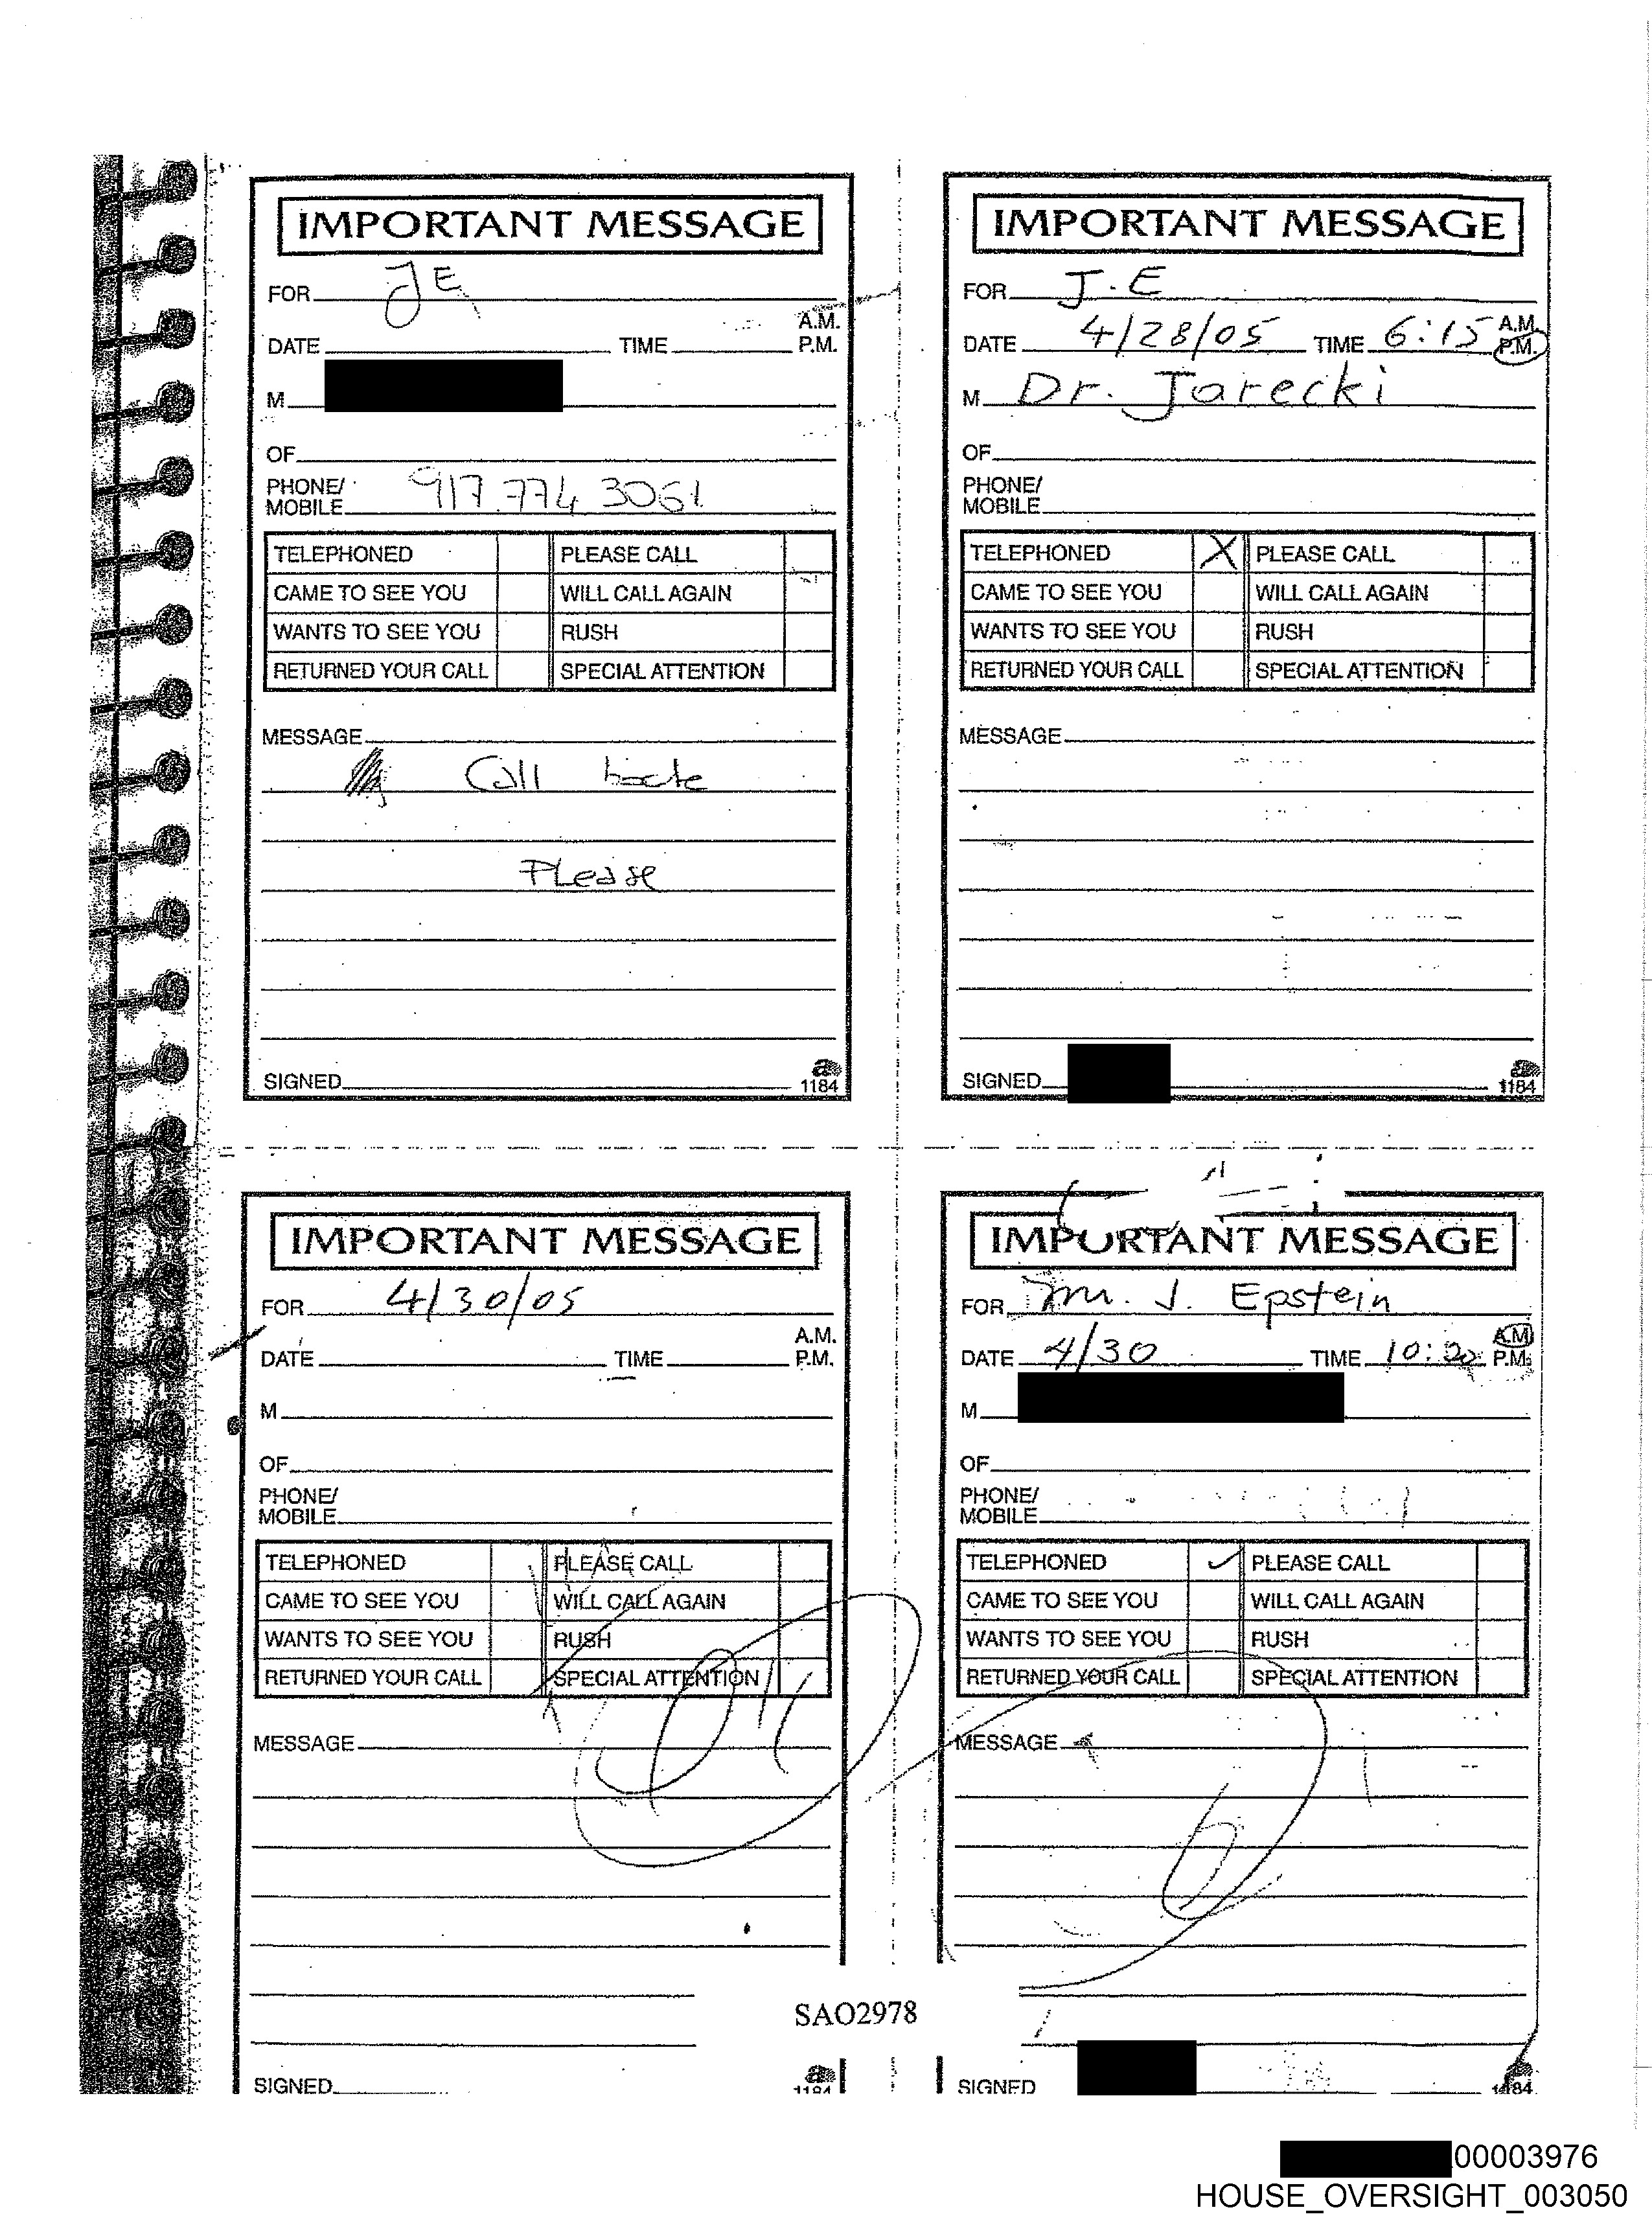 IMPORTANT MESSAGE
FOR JE
A.M.
DATE TIME P.M.
M
OF
PHONE/
MOBILE 917.774.3061
TELEPHONED PLEASE CALL
CAME TO SEE YOU WILL CALL AGAIN
WANTS TO SEE YOU RUSH
RETURNED YOUR CALL SPECIAL ATTENTION
MESSAGE
Call back
Please
SIGNED
1184
IMPORTANT MESSAGE
FOR J.E
DATE 4/28/05 TIME 6:15 A.M.
P.M.
M Dr. Jarecki
OF
PHONE/
MOBILE
TELEPHONED X PLEASE CALL
CAME TO SEE YOU WILL CALL AGAIN
WANTS TO SEE YOU RUSH
RETURNED YOUR CALL SPECIAL ATTENTION
MESSAGE
SIGNED
1184
IMPORTANT MESSAGE
FOR 4/30/05
A.M.
DATE TIME P.M.
M
OF
PHONE/
MOBILE
TELEPHONED PLEASE CALL
CAME TO SEE YOU WILL CALL AGAIN
WANTS TO SEE YOU RUSH
RETURNED YOUR CALL SPECIAL ATTENTION
MESSAGE
SIGNED
1184
IMPORTANT MESSAGE
FOR J. Epstein
A.M.
DATE 4/30 TIME P.M.
M
OF
PHONE/
MOBILE
TELEPHONED ✓ PLEASE CALL
CAME TO SEE YOU WILL CALL AGAIN
WANTS TO SEE YOU RUSH
RETURNED YOUR CALL SPECIAL ATTENTION
MESSAGE
SIGNED
1184
SAO2978
00003976
HOUSE_OVERSIGHT_003050